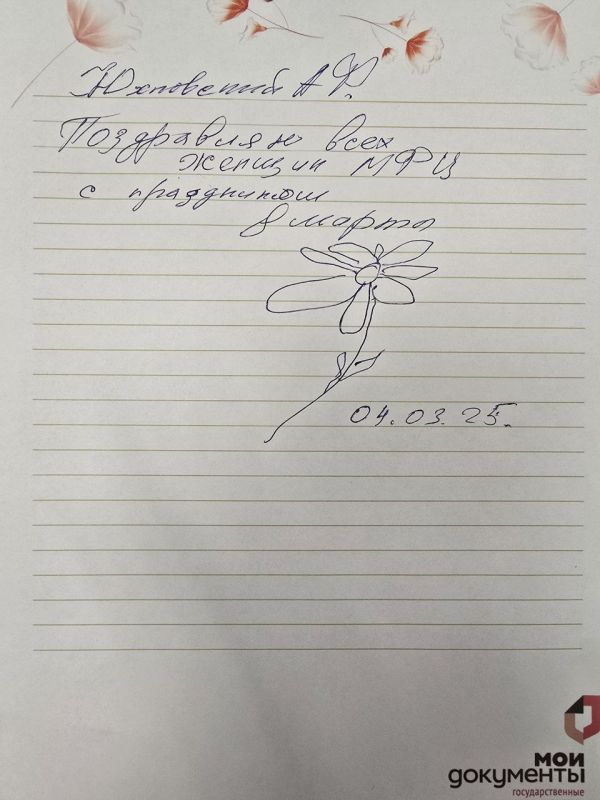 Юхновский А Ф.
Поздравляю всех
женщин МФЦ
с праздником
8 марта
04.03.25.
мои
документы
государственные